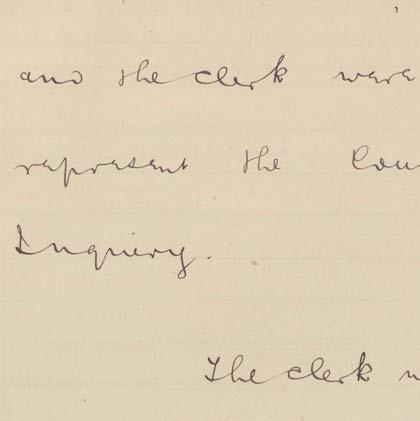 and the clerk were
represent the Coun
Inquiry.
The clerk